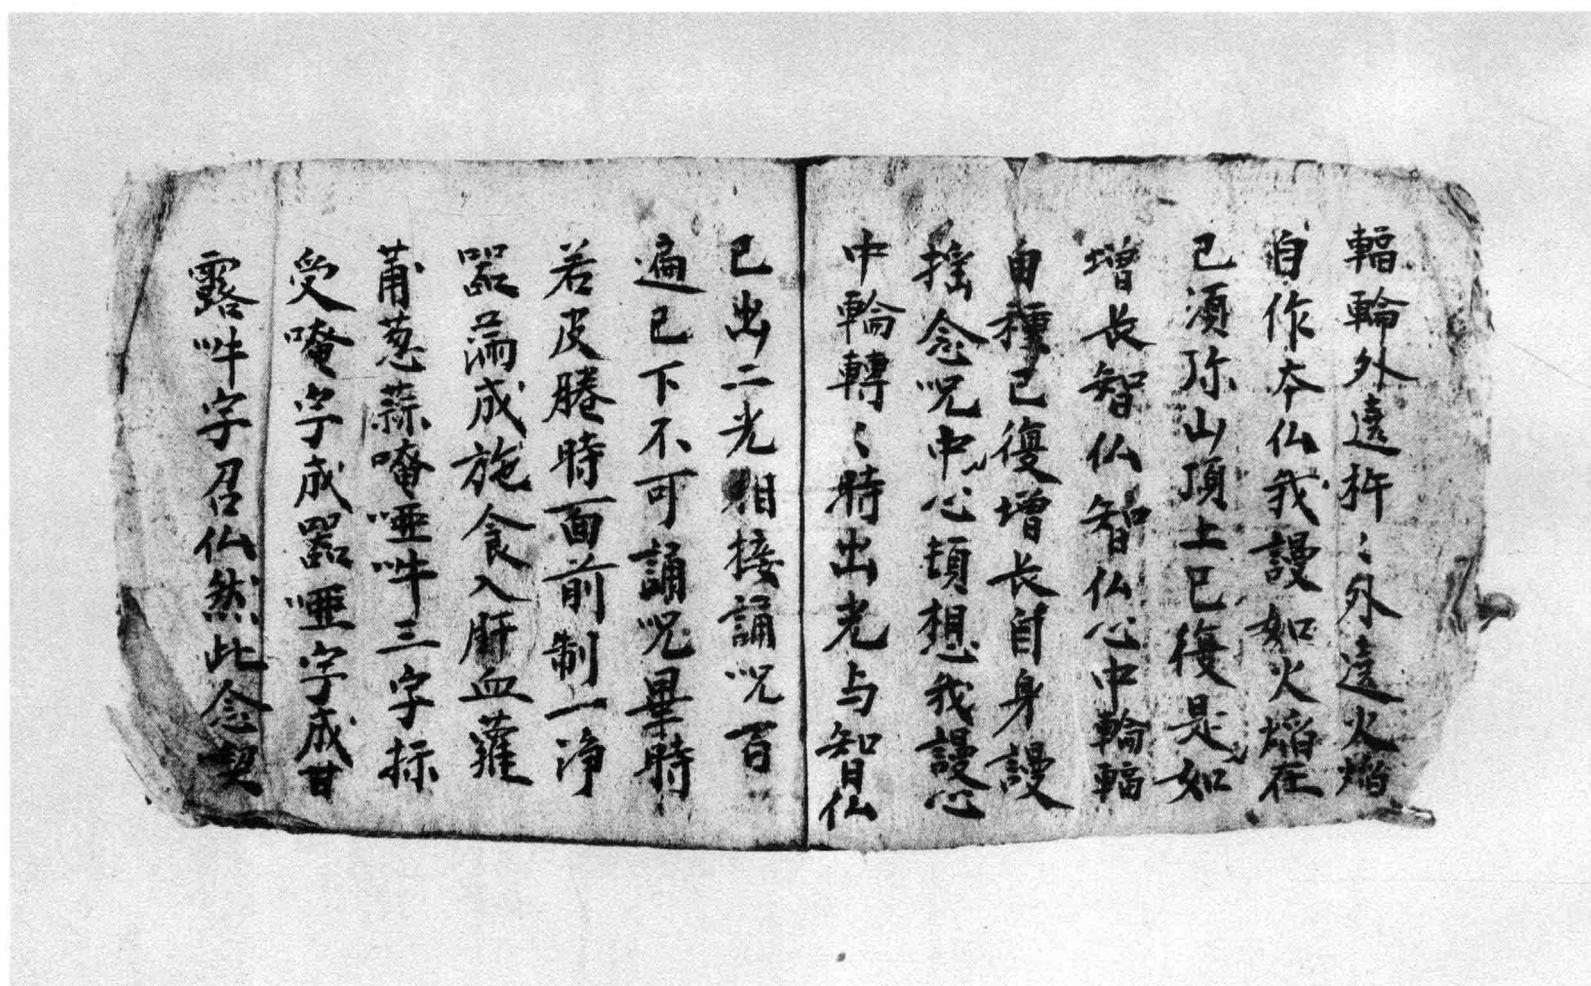 輻輪外遶杵〻外遶火焰
自作夲仏我謾如火焰在
已湏弥山頂上已復是如
增長智仏智仏心中輪輻
自種已復增長自身謾
摇念呪中心頃想我謾心
中輪轉〻時出光与智仏
已出二光相接誦呪百
遍已下不可誦呪畢時
若皮膳時面前制一净
器滿成施食入肝血蘿
蔔葱蒜唵啞吽三字标
受唵字成器啞字成甘
露吽字召仏然此念契